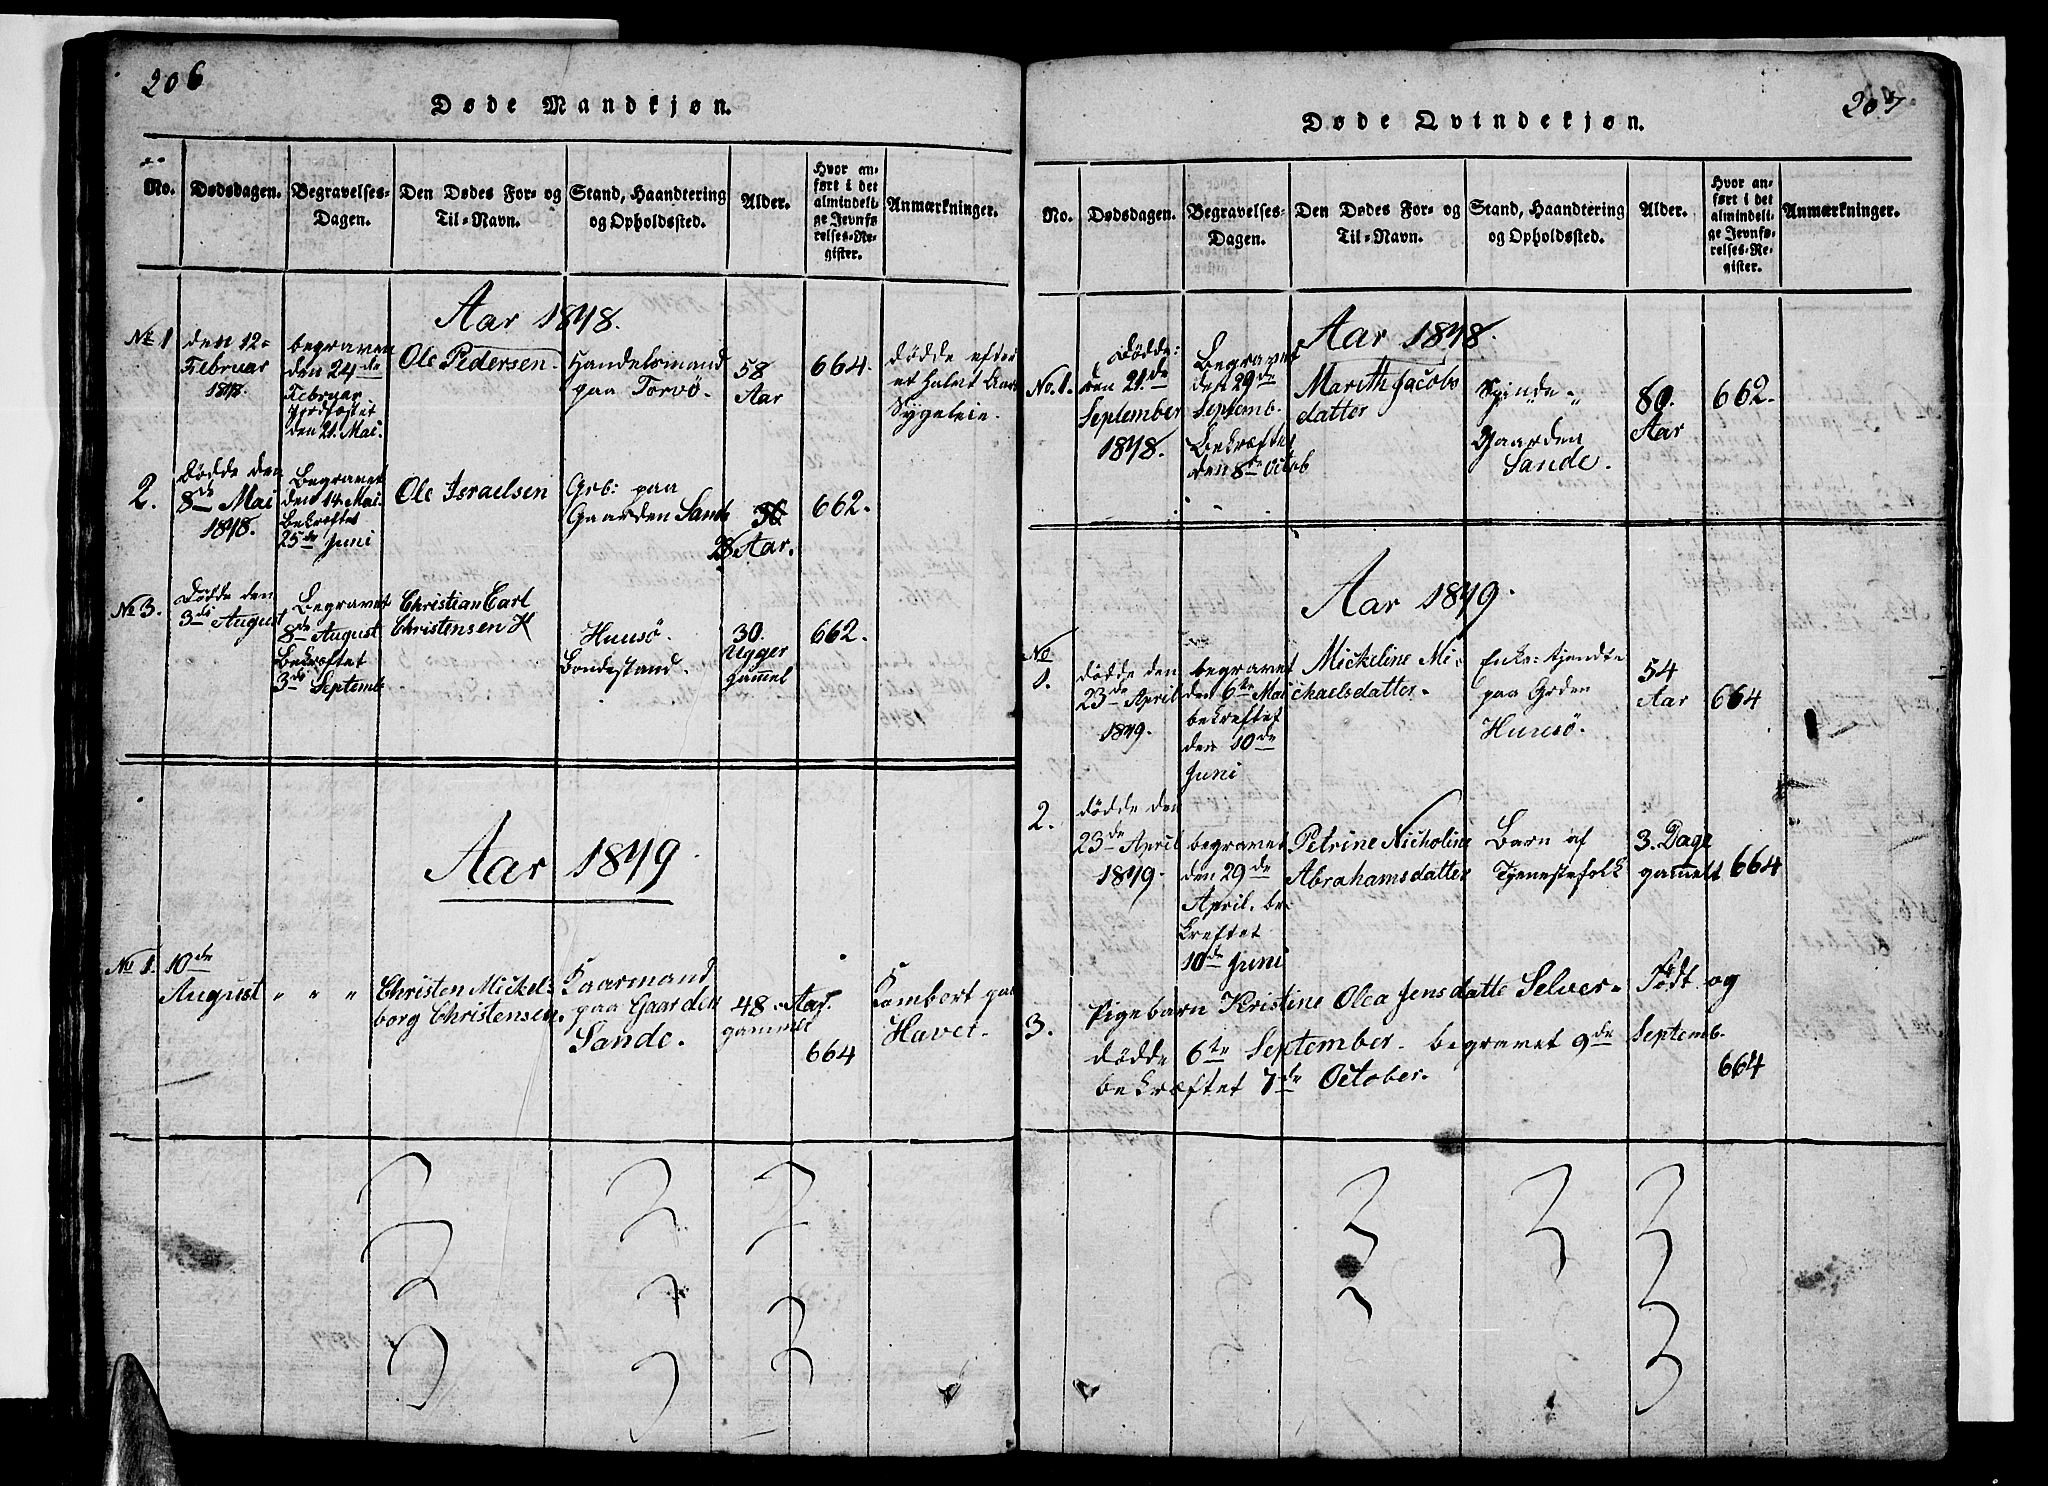 206
Døde Mandkjøn.
No.
Dødsdagen.
Begravelses-
Dagen.
Den Dødes For- og
Til-Navn.
Stand, Haandtering
og Opholdssted.
Alder.
Hvor an-
ført i det
almindeli-
ge Jevnfø-
relses-Re-
gister.
Anmærkninger.
Aar 1848.
No 1
den 12=
Februar
1848.
begraven
den 24de
Februar
Jordfæstet
den 21. Mai.
Ole Pedersen.
Handelsmand
paa Torvø.
58
Aar
664.
dødde efter
et halvt Aars
Sygeleie.
2.
Dødde den
8de Mai
1848.
Begravet
den 14. Mai.
Bekræftes
25de Juni
Ole Israelsen
Grb: paa
Gaarden Sande
28 Aar.
662.
No 3.
Dødde den
3de August
Begravet
8de August
Bekræftet
3de Septemb
Christian Carl
Christensen
Huusø.
Bondestand.
30.
Ugger
gammel
662.
Aar 1849.
No 1.
10de
August
" " "
Christen Mickel=
borg Christensen.
Kaarmand
paa Gaarden
Sande.
48 Aar.
gammel
664
Havet.
207
Døde Qvindekjøn.
No.
Dødsdagen.
Begravelses-
Dagen.
Den Dødes For- og
Til-Navn.
Stand, Haandtering
og Opholdssted.
Alder.
Hvor an-
ført i det
almindeli-
ge Jevnfø-
relses-Re-
gister.
Anmærkninger.
Aar 1848.
No. 1.
Dødde:
den 21.de
September
1848.
Begravet
den 29de
Septemb.
Bekræftet
den 8de Octob
Marith Jacobs
datter
Gaarden
Sande.
80.
Aar
662.
Aar 1849.
No
1.
dødde den
23de April
1849.
begravet
den 6te Mai
bekreftet
den 10de
Juni
Mickeline Mi-
chaelsdatter.
Enke:
paa Grden
Huusø.
54
Aar
664
2.
dødde den
23de April
1849.
begravet
den 29de
April. be-
kreftet
10de Juni
Petrine Nicholine
Abrahamsdatter
Barn af
Tjenestefolk
3. Dage
gammelt
664
3.
Pigebarn Kristine Olea Jensdatte Selver. Født og
dødde 6te September. begravet 9de Septemb.
bekræftet 7de October.
664